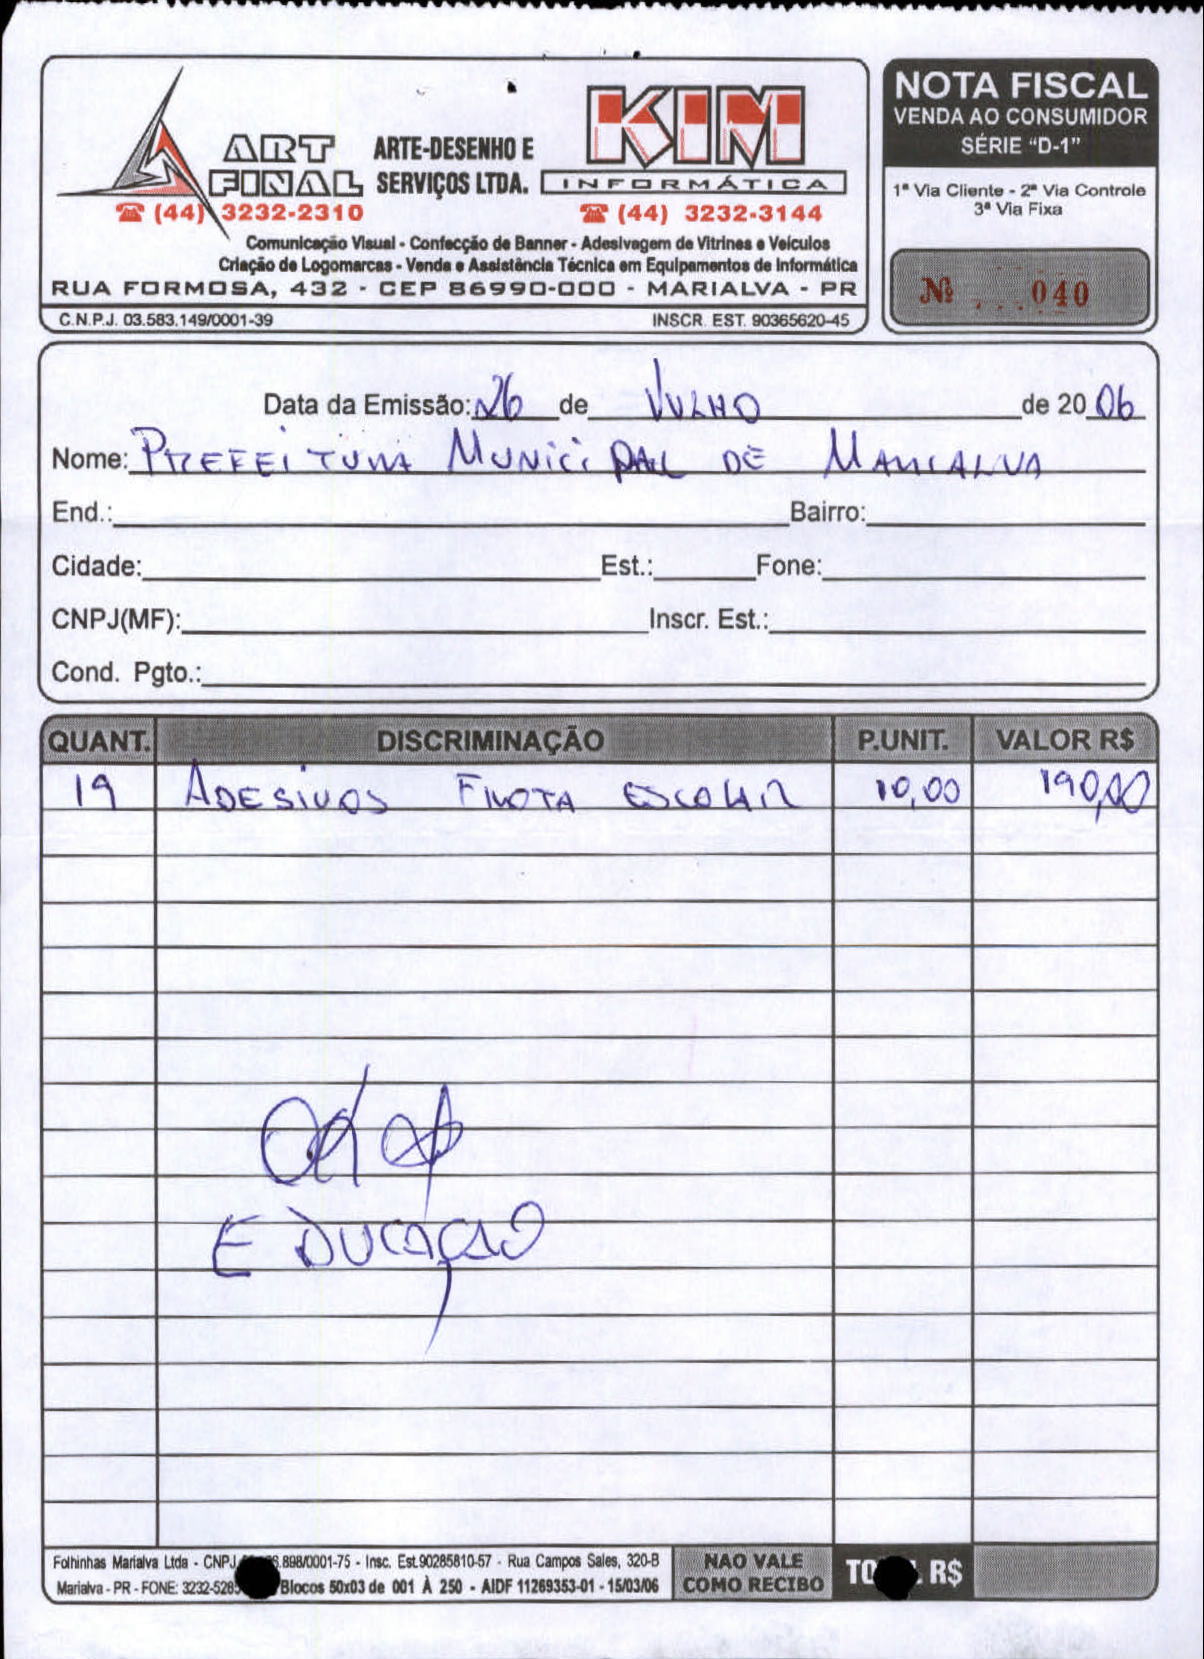 ART FINAL
ARTE-DESENHO E SERVIÇOS LTDA.
KIM INFORMÁTICA
(44) 3232-2310
(44) 3232-3144
Comunicação Visual - Confecção de Banner - Adesivagem de Vitrines e Veículos
Criação de Logomarcas - Venda e Assistência Técnica em Equipamentos de Informática
RUA FORMOSA, 432 - CEP 86990-000 - MARIALVA - PR
C.N.P.J. 03.583.149/0001-39 INSCR. EST. 90365620-45
NOTA FISCAL
VENDA AO CONSUMIDOR
SÉRIE "D-1"
1ª Via Cliente - 2ª Via Controle
3ª Via Fixa
Nº ...040
Data da Emissão: 26 de JULHO de 2006
Nome: PREFEITURA MUNICIPAL DE MARIALVA
End.: Bairro:
Cidade: Est.: Fone:
CNPJ(MF): Inscr. Est.:
Cond. Pgto.:
QUANT. DISCRIMINAÇÃO P.UNIT. VALOR R$
19 ADESIVOS FROTA ESCOLAR 10,00 190,00
EDUCAÇÃO
Folhinhas Marialva Ltda - CNPJ .898/0001-75 - Insc. Est.90285810-57 - Rua Campos Sales, 320-B
Marialva - PR - FONE: 3232-528 Blocos 50x03 de 001 À 250 - AIDF 11269353-01 - 15/03/06
NAO VALE
COMO RECIBO
TO R$